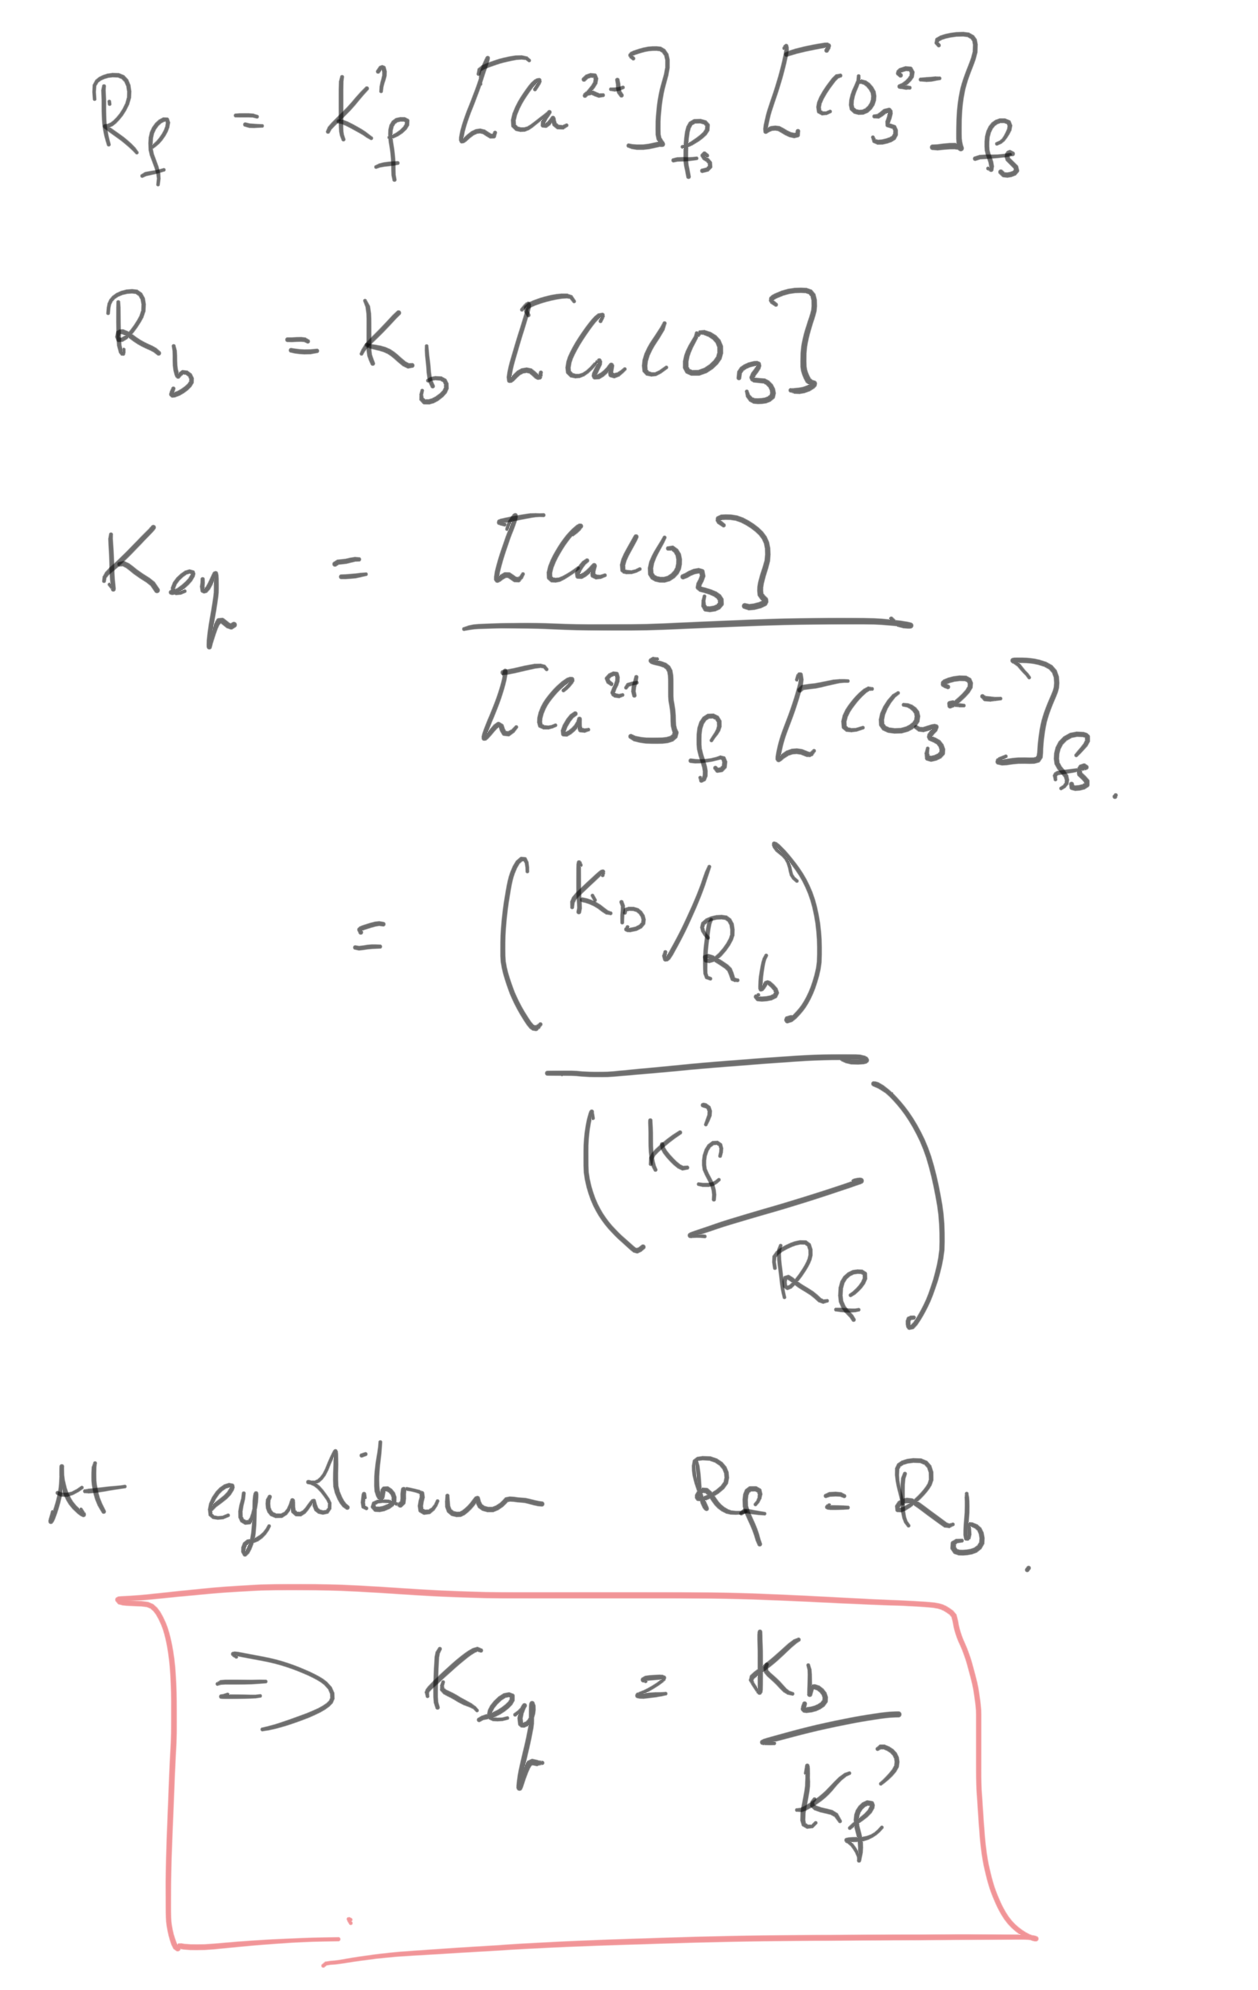 R_f = K'_f [Ca²⁺]_fs [CO₃²⁻]_fs
R_b = K_b [CaCO₃]
K_eq = [CaCO₃] / [Ca²⁺]_fs [CO₃²⁻]_fs.
= (K_b/R_b) / (K'_f/R_f)
At equilibrium R_f = R_b.
⇒ K_eq = K_b / K_f'